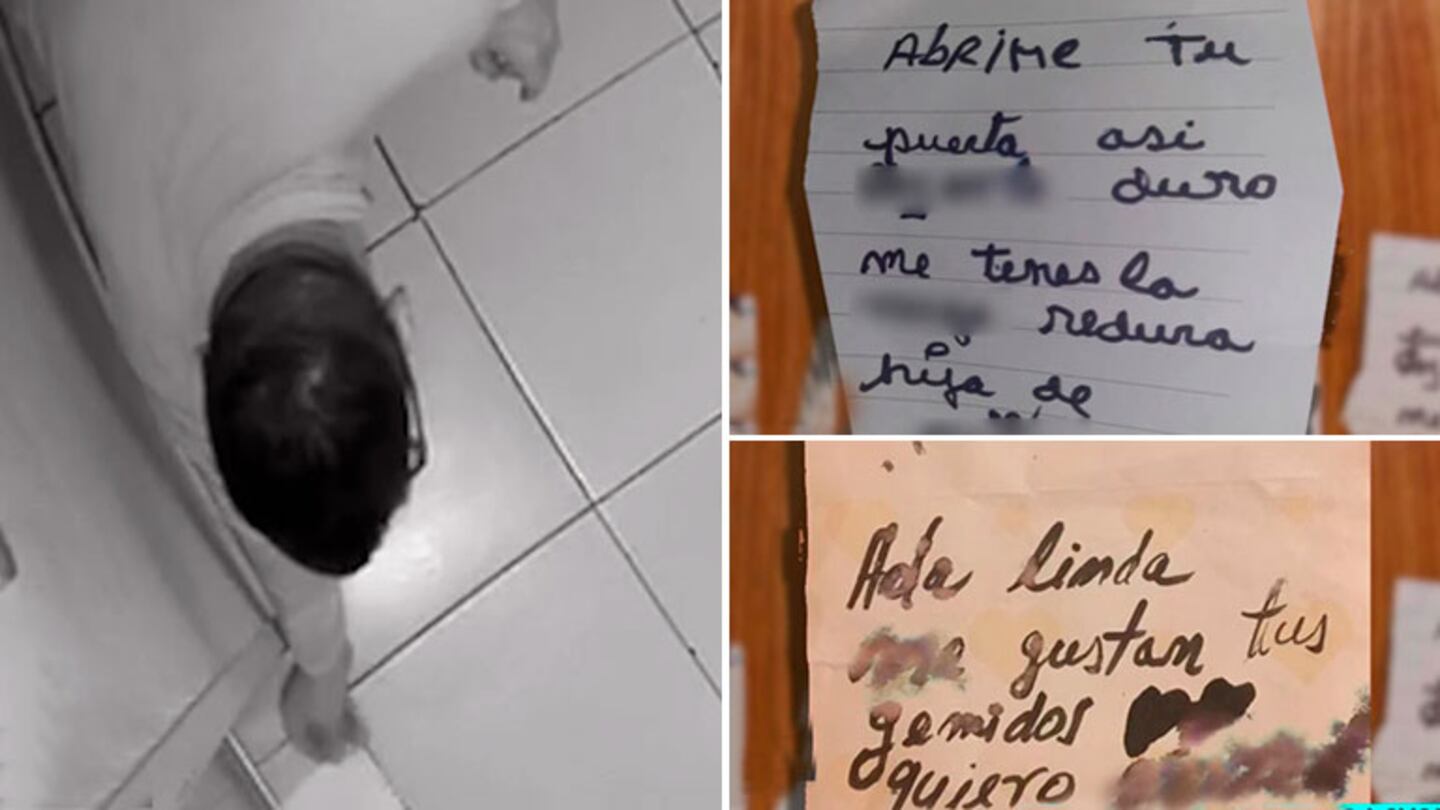 ABRIME tu
puerta asi
duro
me tenes la
redura
hija de
Ada linda
me gustan tus
gemidos
quiero